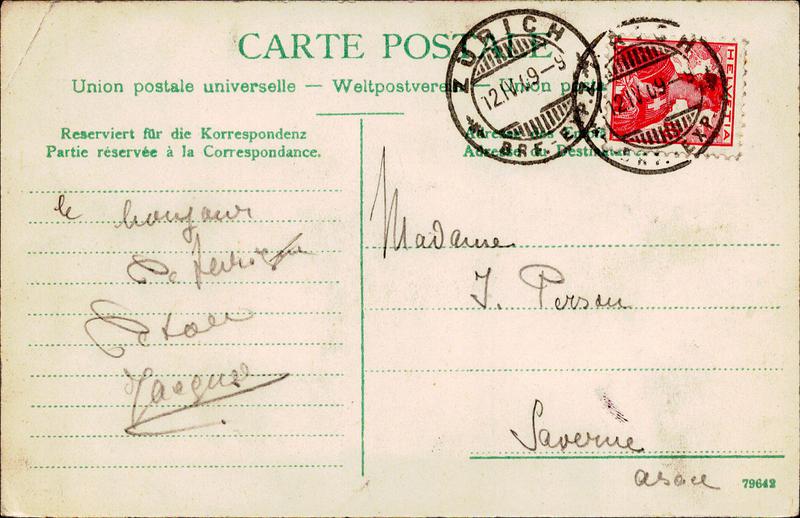 CARTE POSTALE
Union postale universelle — Weltpostverein — Union posta
ZÜRICH
12.IV.09-9
BRF.EXP.
HELVETIA
Reserviert für die Korrespondenz
Partie réservée à la Correspondance.
Adresse du Destinatai
le bonjour
de
Jacques
Madame
J. Person
Saverne
alsace
79642